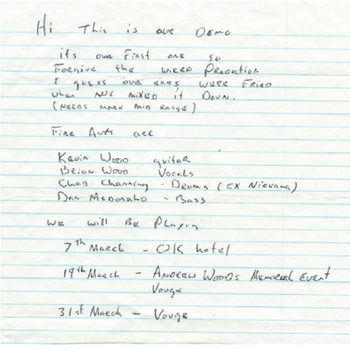 Hi This is our Demo
its our First one so
Forgive the wierd Production
I guess our ears were Fried
when we mixed it Down.
(needs more mid range)
Fire Ants are
Kevin Wood guitar
Brian Wood Vocals
Chad Channing - Drums (ex Nirvana)
Dan McDonald - Bass
we will Be Playin
7th March - OK hotel
19th March - Andrew Woods Memorial Event
Vouge
31st March - Vouge